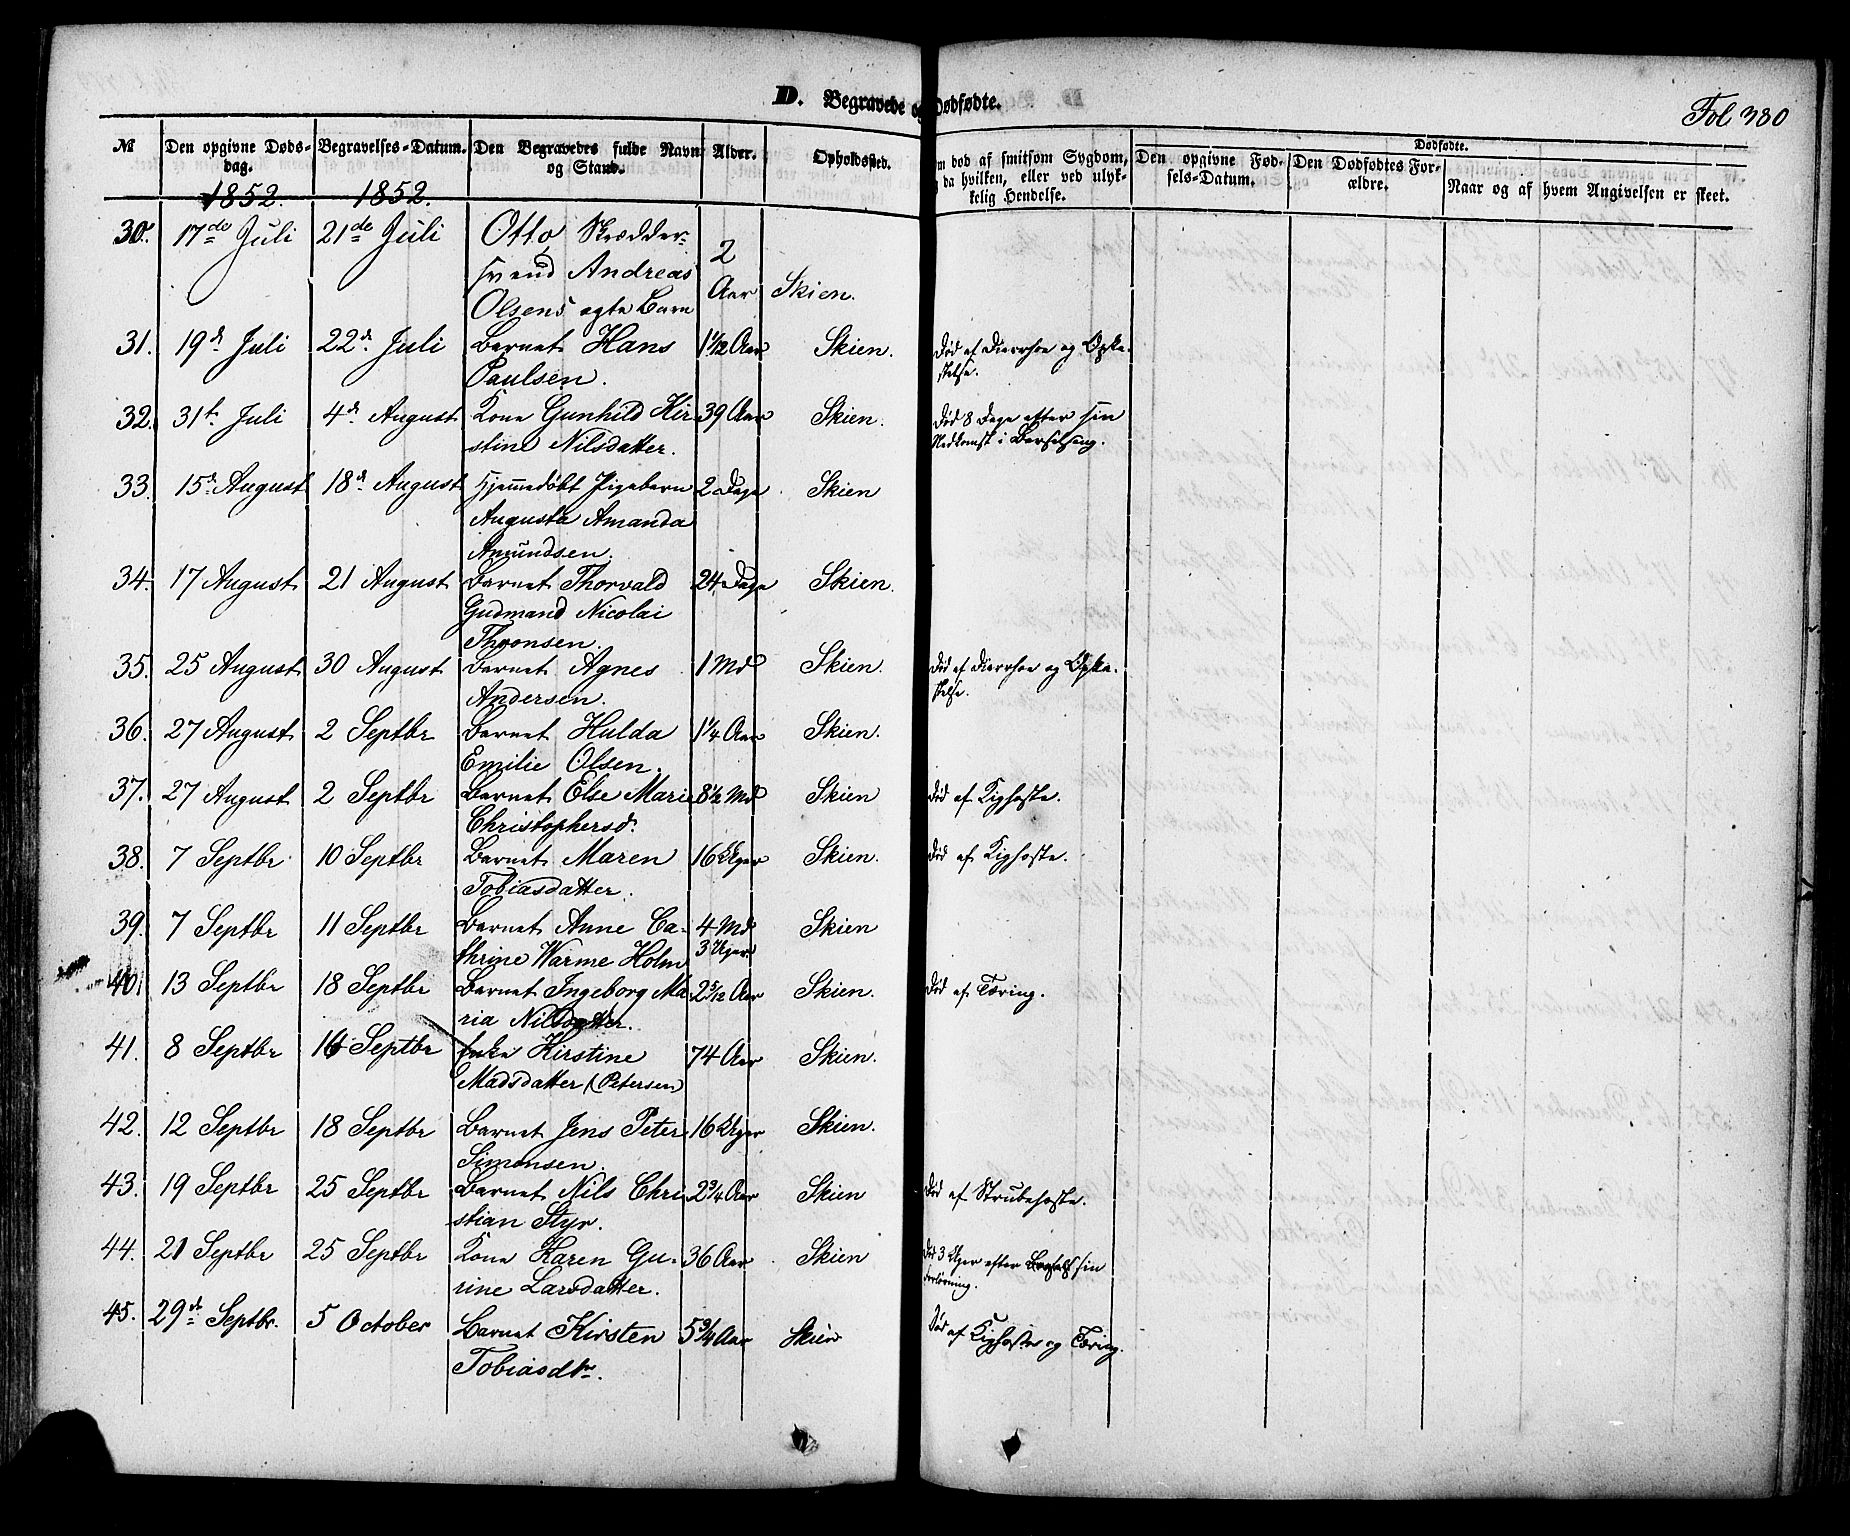 D. Begravede og Dødfødte.
Fol 380
№ Den opgivne Døds- Begravelses-Datum. Den Begravedes fulde Navn Alder. Opholdssted. død af smitsom Sygdom, Den opgivne Fød- Den Dødfødtes For- Dødfødte.
dag. og Stand. da hvilken, eller ved ulyk- sels-Datum. ældre. Naar og af hvem Angivelsen er skeet.
kelig Hendelse.
1852. 1852.
30. 17de Juli 21de Juli Otto Skrædder- 2
svend Andreas Aar Skien.
Olsens ægte Barn
31. 19d Juli 22d Juli Barnet Hans 1 1/12 Aar Skien. Død af Diarrhoe og Opka-
Paulsen. stelse.
32. 31t Juli 4d August Kone Gunhild Kir- 39 Aar Skien. Død 8 Dage efter sin
stine Nilsdatter. Nedkomst i Barselseng.
33. 15d August 18d August Hjemmedøbt Pigebarn 2 Dage Skien
Augusta Amanda
Amundsen.
34. 17 August 21 August Barnet Thorvald 24 Dage Skien.
Gudmand Nicolai
35. 25 August 30 August Barnet Agnes 1 Md Skien. Død af Diarrhoe og Opka-
Andersen. stelse.
36. 27 August 2 Septbr Barnet Hulda 1 1/4 Aar Skien.
Emilie Olsen.
37. 27 August 2 Septbr Barnet Else Marie 8 1/2 Md Skien Død af Kighoste.
Christophersd.
38. 7 Septbr 10 Septbr Barnet Maren 16 Uger Skien. Død af Kighoste.
Tobiasdatter.
39. 7 Septbr 11 Septbr Barnet Anne Ca- 4 Md Skien
thrine Warme Holm 3 Uger
40. 13 Septbr 18 Septbr Barnet Ingeborg Ma- 2 5/12 Aar Skien. Død af Tæring.
ria Nilsdatter.
41. 8 Septbr 16 Septbr Enke Kirstine 74 Aar Skien.
Madsdatter (Petersen)
42. 12 Septbr 18 Septbr Barnet Jens Peter 16 Uger Skien.
Simonsen.
43. 19 Septbr 25 Septbr Barnet Nils Chri 2 3/4 Aar Skien Død af Strubehoste.
stian Styr.
44. 21 Septbr 25 Septbr Kone Karen Gu- 36 Aar Skien Død 3 Uger efter sin
rine Larsdatter. Forløsning.
45. 29d Septbr. 5 October Barnet Kirsten 5 3/4 Aar Skien Død af Kighoste og Tæring.
Tobiasdtr.